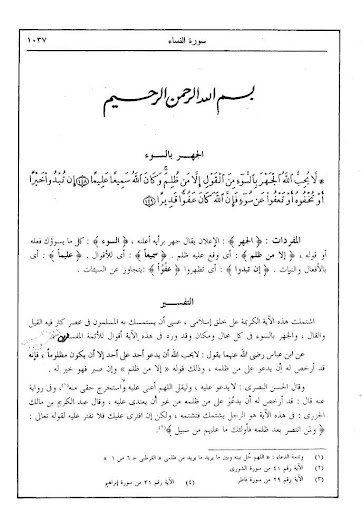 سورة النساء
١٠٣٧
بسم الله الرحمن الرحيم
الجهر بالسوء
* لَّا يُحِبُّ ٱللَّهُ ٱلْجَهْرَ بِٱلسُّوٓءِ مِنَ ٱلْقَوْلِ إِلَّا مَن ظُلِمَ وَكَانَ ٱللَّهُ سَمِيعًا عَلِيمًا ﴿١٤٨﴾ إِن تُبْدُوا۟ خَيْرًا
أَوْ تُخْفُوهُ أَوْ تَعْفُوا۟ عَن سُوٓءٍ فَإِنَّ ٱللَّهَ كَانَ عَفُوًّا قَدِيرًا ﴿١٤٩﴾
المفردات : ﴿ الجهر ﴾ : الإعلان يقال جهر برأيه أعلنه ، ﴿ السوء ﴾ : كل ما يسوؤك فعله
أو قوله ، ﴿ إلا من ظلم ﴾ : أى وقع عليه ظلم . ﴿ سميعاً ﴾ : أى للأقوال . ﴿ عليماً ﴾ : أى
بالأفعال والنيات . ﴿ إن تبدوا ﴾ : أى تظهروا ﴿ عفواً ﴾ : يتجاوز عن السيئات .
التفسير
اشتملت هذه الآية الكريمة على خلق إسلامى ، عسى أن يستمسك به المسلمون فى عصر كثر فيه القيل
والقال ، والجهر بالسوء فى كل مجال ومكان وقد ورد فى هذه الآية أقوال للأئمة
عن ابن عباس رضى الله عنهما يقول : لا يحب الله أن يدعو أحد على أحد إلا أن يكون مظلوماً ، فإنه
قد أرخص له أن يدعو على من ظلمه ، وذلك قوله « إلا من ظلم » وإن صبر فهو خير له .
وقال الحسن البصرى : لا يدعو عليه ، وليقل اللهم أعنى عليه واستخرج حقى منه(١)، وفى رواية
عنه قال : قد أرخص له أن يدعو على من ظلمه من غير أن يعتدى عليه ، وقال عبد الكريم بن مالك
الجزرى : فى هذه الآية هو الرجل يشتمك فتشتمه ، ولكن إن افترى عليك فلا تفتر عليه لقوله تعالى :
﴿ ولمن انتصر بعد ظلمه فأولئك ما عليهم من سبيل ﴾(٢).
(١) وتتمة الدعاء : « اللهم حُل بينه وبين ما يريد من ظلمى » القرطبى ج ٦ ص ١
(٢) الآية رقم ٤١ من سورة الشورى
(٣) الآية رقم ٢٩ من سورة فاطر
(٤) الآية رقم ٣١ من سورة إبراهيم